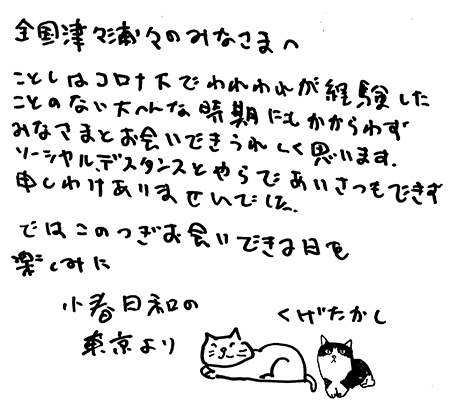 全国津々浦々のみなさまへ
ことしはコロナ下でわれわれが経験した
ことのない大へんな時期にもかかわらず
みなさまとお会いできうれしく思います.
ソーシャル.デスタンスとやらであいさつもできず
申しわけありませんでした.
ではこのつぎお会いできる日を
楽しみに
小春日和の
東京より
くげたかし